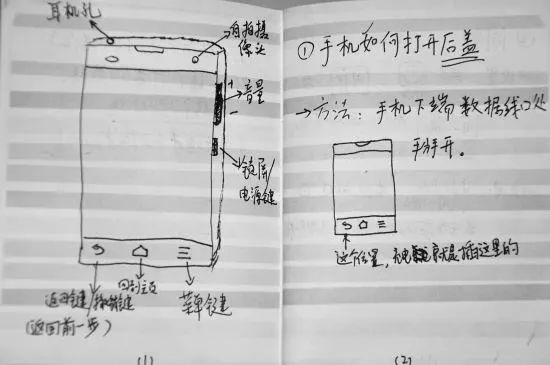 耳机孔
自拍摄
像头
+
音量
-
锁屏/
电源键
返回键/撤销键
(返回前一步)
回到主页
菜单键
(1)
① 手机如何打开后盖
→方法：手机下端数据线口处
掰开。
这个位置，充电就是插这里的
(2)